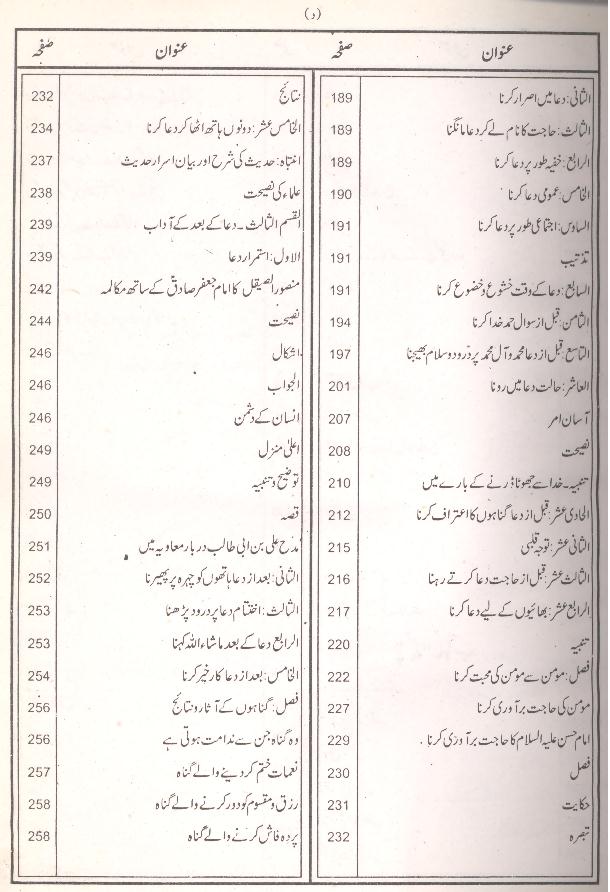 (د)
عنوان صفحہ
الثانی: دعا میں اصرار کرنا 189
الثالث: حاجت کا نام لے کر دعا مانگنا 189
الرابع: خفیہ طور پر دعا کرنا 189
الخامس: عمومی دعا کرنا 190
السادس: اجتماعی طور پر دعا کرنا 191
تذنیب 191
السابع: دعا کے وقت خشوع و خضوع کرنا 191
الثامن: قبل از سوال حمد خدا کرنا 194
التاسع: قبل از دعا محمد و آل محمد پر درود و سلام بھیجنا 197
العاشر: حالت دعا میں رونا 201
آسان امر 207
نصیحت 208
تنبیہ۔ خدا سے جھوٹا ڈرنے کے بارے میں 210
الحادی عشر: قبل از دعا گناہوں کا اعتراف کرنا 212
الثانی عشر: توجہ قلبی 215
الثالث عشر: قبل از حاجت دعا کرتے رہنا 216
الرابع عشر: بھائیوں کے لیے دعا کرنا 217
تنبیہ 220
فصل: مومن سے مومن کی محبت کرنا 222
مومن کی حاجت برآوری کرنا 227
امام حسن علیہ السلام کا حاجت برآوری کرنا 229
فصل 230
حکایت 231
تبصرہ 232
عنوان صفحہ
نتائج 232
الخامس عشر: دونوں ہاتھ اٹھا کر دعا کرنا 234
انتباہ: حدیث کی شرح اور بیان اسرار حدیث 237
علماء کی نصیحت 238
القسم الثالث۔ دعا کے بعد کے آداب 239
الاول: استمرار دعا 239
منصور الصیقل کا امام جعفر صادقؑ کے ساتھ مکالمہ 242
نصیحت 244
اشکال 246
الجواب 246
انسان کے دشمن 246
اعلیٰ منزل 249
توضیح و تنبیہ 249
قصہ 250
مدح علی بن ابی طالب دربار معاویہ میں 251
الثانی: بعد از دعا ہاتھوں کو چہرہ پر پھیرنا 252
الثالث: اختتام دعا پر درود پڑھنا 253
الرابع دعا کے بعد ماشاء اللہ کہنا 253
الخامس: بعد از دعا کار خیر کرنا 254
فصل: گناہوں کے آثار و نتائج 256
وہ گناہ جن سے ندامت ہوتی ہے 256
نعمات ختم کر دینے والے گناہ 257
رزق و مقسوم کو دور کرنے والے گناہ 258
پردہ فاش کرنے والے گناہ 258